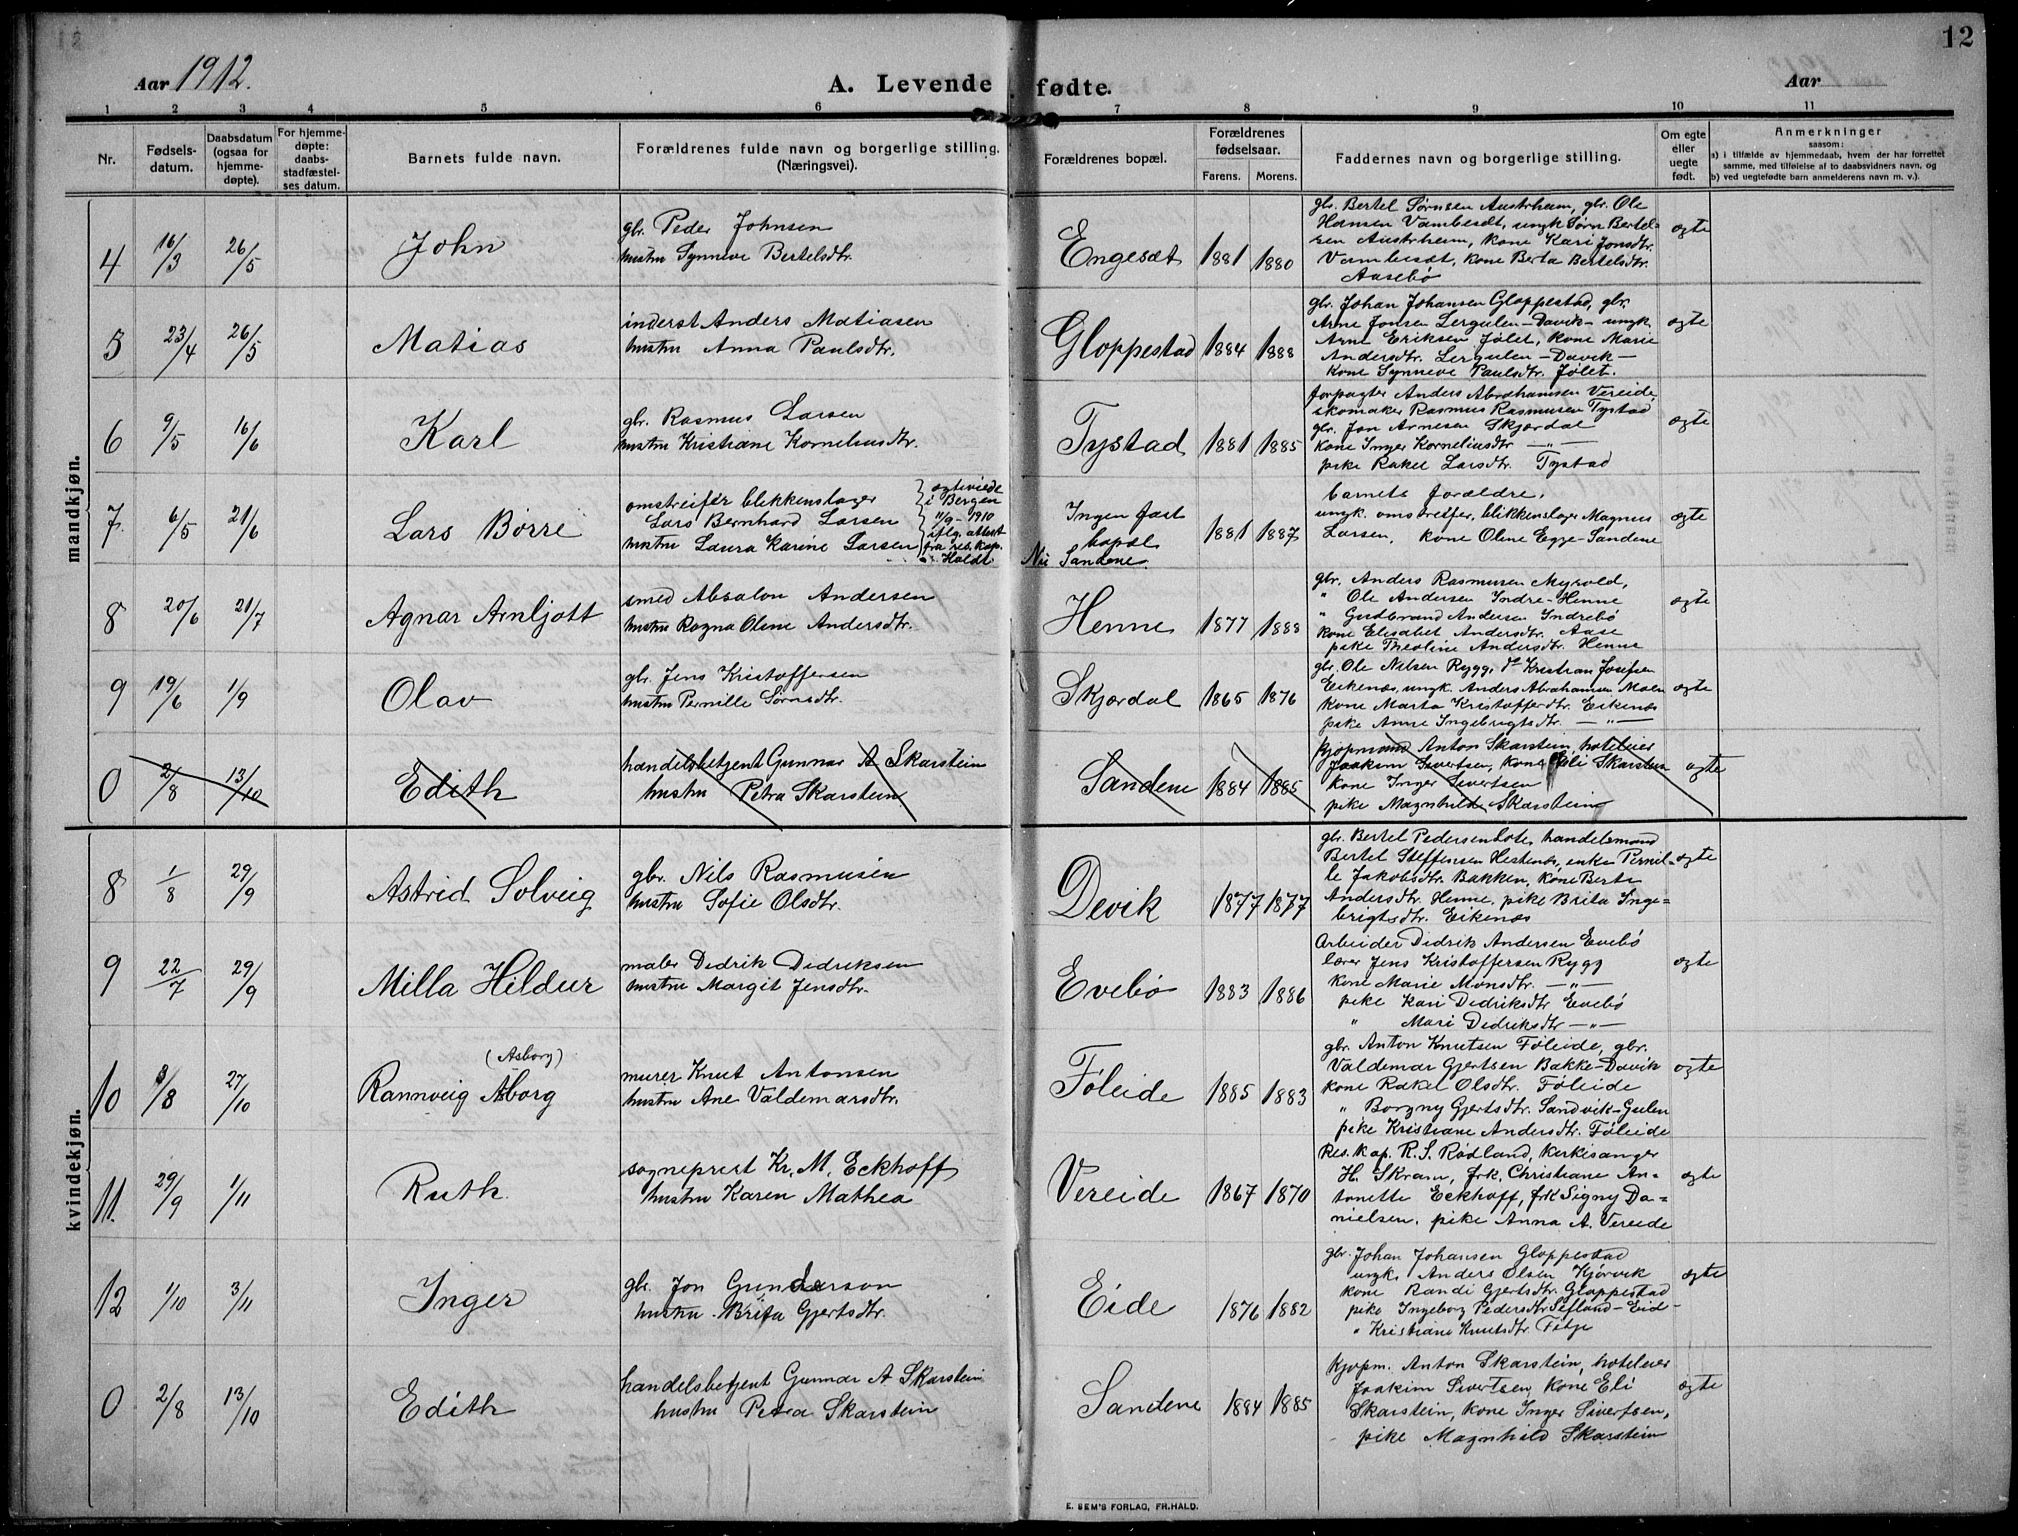 12
Aar 1912.
A. Levende fødte.
Aar
1 2 3 4 5 6 7 8 9 10 11
Nr.
Fødsels-
datum.
Daabsdatum
(ogsaa for
hjemme-
døpte).
For hjemme-
døpte:
daabs-
stadfæstel-
ses datum.
Barnets fulde navn.
Forældrenes fulde navn og borgerlige stilling.
(Næringsvei).
Forældrenes bopæl.
Forældrenes
fødselsaar.
Farens. Morens.
Faddernes navn og borgerlige stilling.
Om egte
eller
uegte
født.
Anmerkninger
saasom:
a) i tilfælde av hjemmedaab, hvem der har forrettet
samme, med tilføielse af to daabsvidners navn, og
b) ved uegtefødte barn anmelderens navn m. v.).
mandkjøn.
4 16/3 26/5 John
gbr. Peder Johnsen
hustru Synneve Bertelsdtr.
Engesæt 1881 1880
gbr. Bertel Sørnsen Austrheim, gbr. Ole
Hansen Vambesæt, ungk Sørn Bertel-
sen Austrheim, kone Kari Jonsdtr.
Vambesæt, kone Berta Bertelsdtr.
Aasebø
ægte
5 23/4 26/5 Matias
inderst Anders Matiasen
hustru Anna Paulsdtr.
Gloppestad 1884 1888
gbr. Johan Johansen Gloppestad, gbr.
Arne Jonsen Lergulen-Davik- ungk.
Arne Eriksen Jølet, kone Marie
Andersdtr. Lergulen-Davik-
kone Synneve Paulsdtr. Jølet.
ægte
6 9/5 16/6 Karl
gbr. Rasmus Larsen
hustru Kristiane Korneliusdtr.
Tystad 1881 1885
forpagter Anders Abrahamsen Vereide,
skomaker Rasmus Rasmusen Tystad
gbr. Jon Arnesen Skjørdal
kone Inger Korneliusdtr. —"—
pike Rakel Larsdtr. Tystad
ægte
7 6/5 21/6 Lars Børre
omstreifer blikkenslager
Lars Bernhard Larsen
hustru Laura Karine Larsen
ægteviede
i Bergen
11/9-1910
iflg. attest
fra res. kap.
Haldt.
Ingen fast
bopæl
Nu Sandene.
1881 1887
barnets forældre,
ungk. omstreifer, blikkenslager Magnus
Larsen, kone Oline Egge-Sandene
ægte
8 20/6 21/7 Agnar Arnljott
smed Absalon Andersen
hustru Ragna Oline Andersdtr.
Henne 1877 1888
gbr. Anders Rasmusen Myrold,
" Ole Andersen Indre-Henne
" Gudbrand Andersen Indrebø
kone Elisabet Andersdtr. Aase
pike Theoline Andersdtr. Henne
ægte
9 19/6 1/9 Olav
gbr. Jens Kristoffersen
hustru Pernille Sørnsdtr.
Skjørdal 1865 1876
gbr. Ole Nilsen Rygg, do Kristian Josefsen
Eikenæs, ungk. Anders Abrahamsen Moen
kone Marta Kristofferdtr. Eikenæs
pike Anne Ingebrigtsdtr. —"—
ægte
0 2/8 13/10 Edith
handelsbetjent Gunnar A Skarstein
hustru Petra Skarstein
Sandene 1884 1885
kjøpmand Anton Skarstein, hoteleier
Joakim Sivertsen, kone Eli Skarstein
kone Inger Sivertsen
pike Magnhild Skarstein
ægte
kvindekjøn.
8 1/8 29/9 Astrid Solveig
gbr. Nils Rasmusen
hustru Sofie Olsdtr.
Devik 1877 1877
gbr. Bertel Pedersen Lote, handelsmand
Bertel Steffensen Hestenæs, enke Pernil-
le Jakobsdtr. Bakken, kone Berte
Andersdtr. Henne, pike Brita Inge-
brigtsdtr. Eikenæs
ægte
9 22/7 29/9 Milla Hildur
maler Didrik Didriksen
hustru Margit Jensdtr.
Evebø 1883 1886
Arbeider Didrik Andersen Evebø
lærer Jens Kristoffersen Rygg
kone Marie Monsdtr. —"—
pike Kari Didriksdtr Evebø
" Mari Didriksdtr —"—
ægte
10 8/8 27/10 Rannveig Asborg
(Asborg)
murer Knut Antonsen
hustru Ane Valdemarsdtr.
Føleide 1885 1883
gbr. Anton Knutsen Føleide, gbr.
Valdemar Gjertsen Bakke-Davik
kone Rakel Olsdtr. Føleide
" Borgny Gjertsdtr. Sandvik-Gulen
pike Kristiane Andersdtr. Føleide
ægte
11. 29/9 1/11 Ruth
sogneprest Kr. M. Eckhoff
hustru Karen Mathea
Vereide 1867 1870
Res. kap. R. S. Rødland, kirkesanger
H. Skram, frk. Christiane An-
tonette Eckhoff, frk Signy Da-
nielsen, pike Anna A. Vereide
ægte
12 1/10 3/11 Inger
gbr. Jon Gunderson
hustru Brita Gjertsdtr.
Eide 1876 1882
gbr. Johan Johansen Gloppestad
ungk. Anders Olsen Kjørvik
kone Randi Gjertsdtr. Gloppestad
pike Ingeborg Pedersdtr Sefland-Eid-
" Kristiane Knutsdtr. Fitje
ægte
0 2/8 13/10 Edith
handelsbetjent Gunnar A Skarstein
hustru Petra Skarstein
Sandene 1884 1885
kjøpm. Anton Skarstein, hoteleier
Joakim Sivertsen, kone Eli
Skarstein, kone Inger Sivertsen,
pike Magnhild Skarstein
ægte
E. SEM'S FORLAG, FR.HALD.